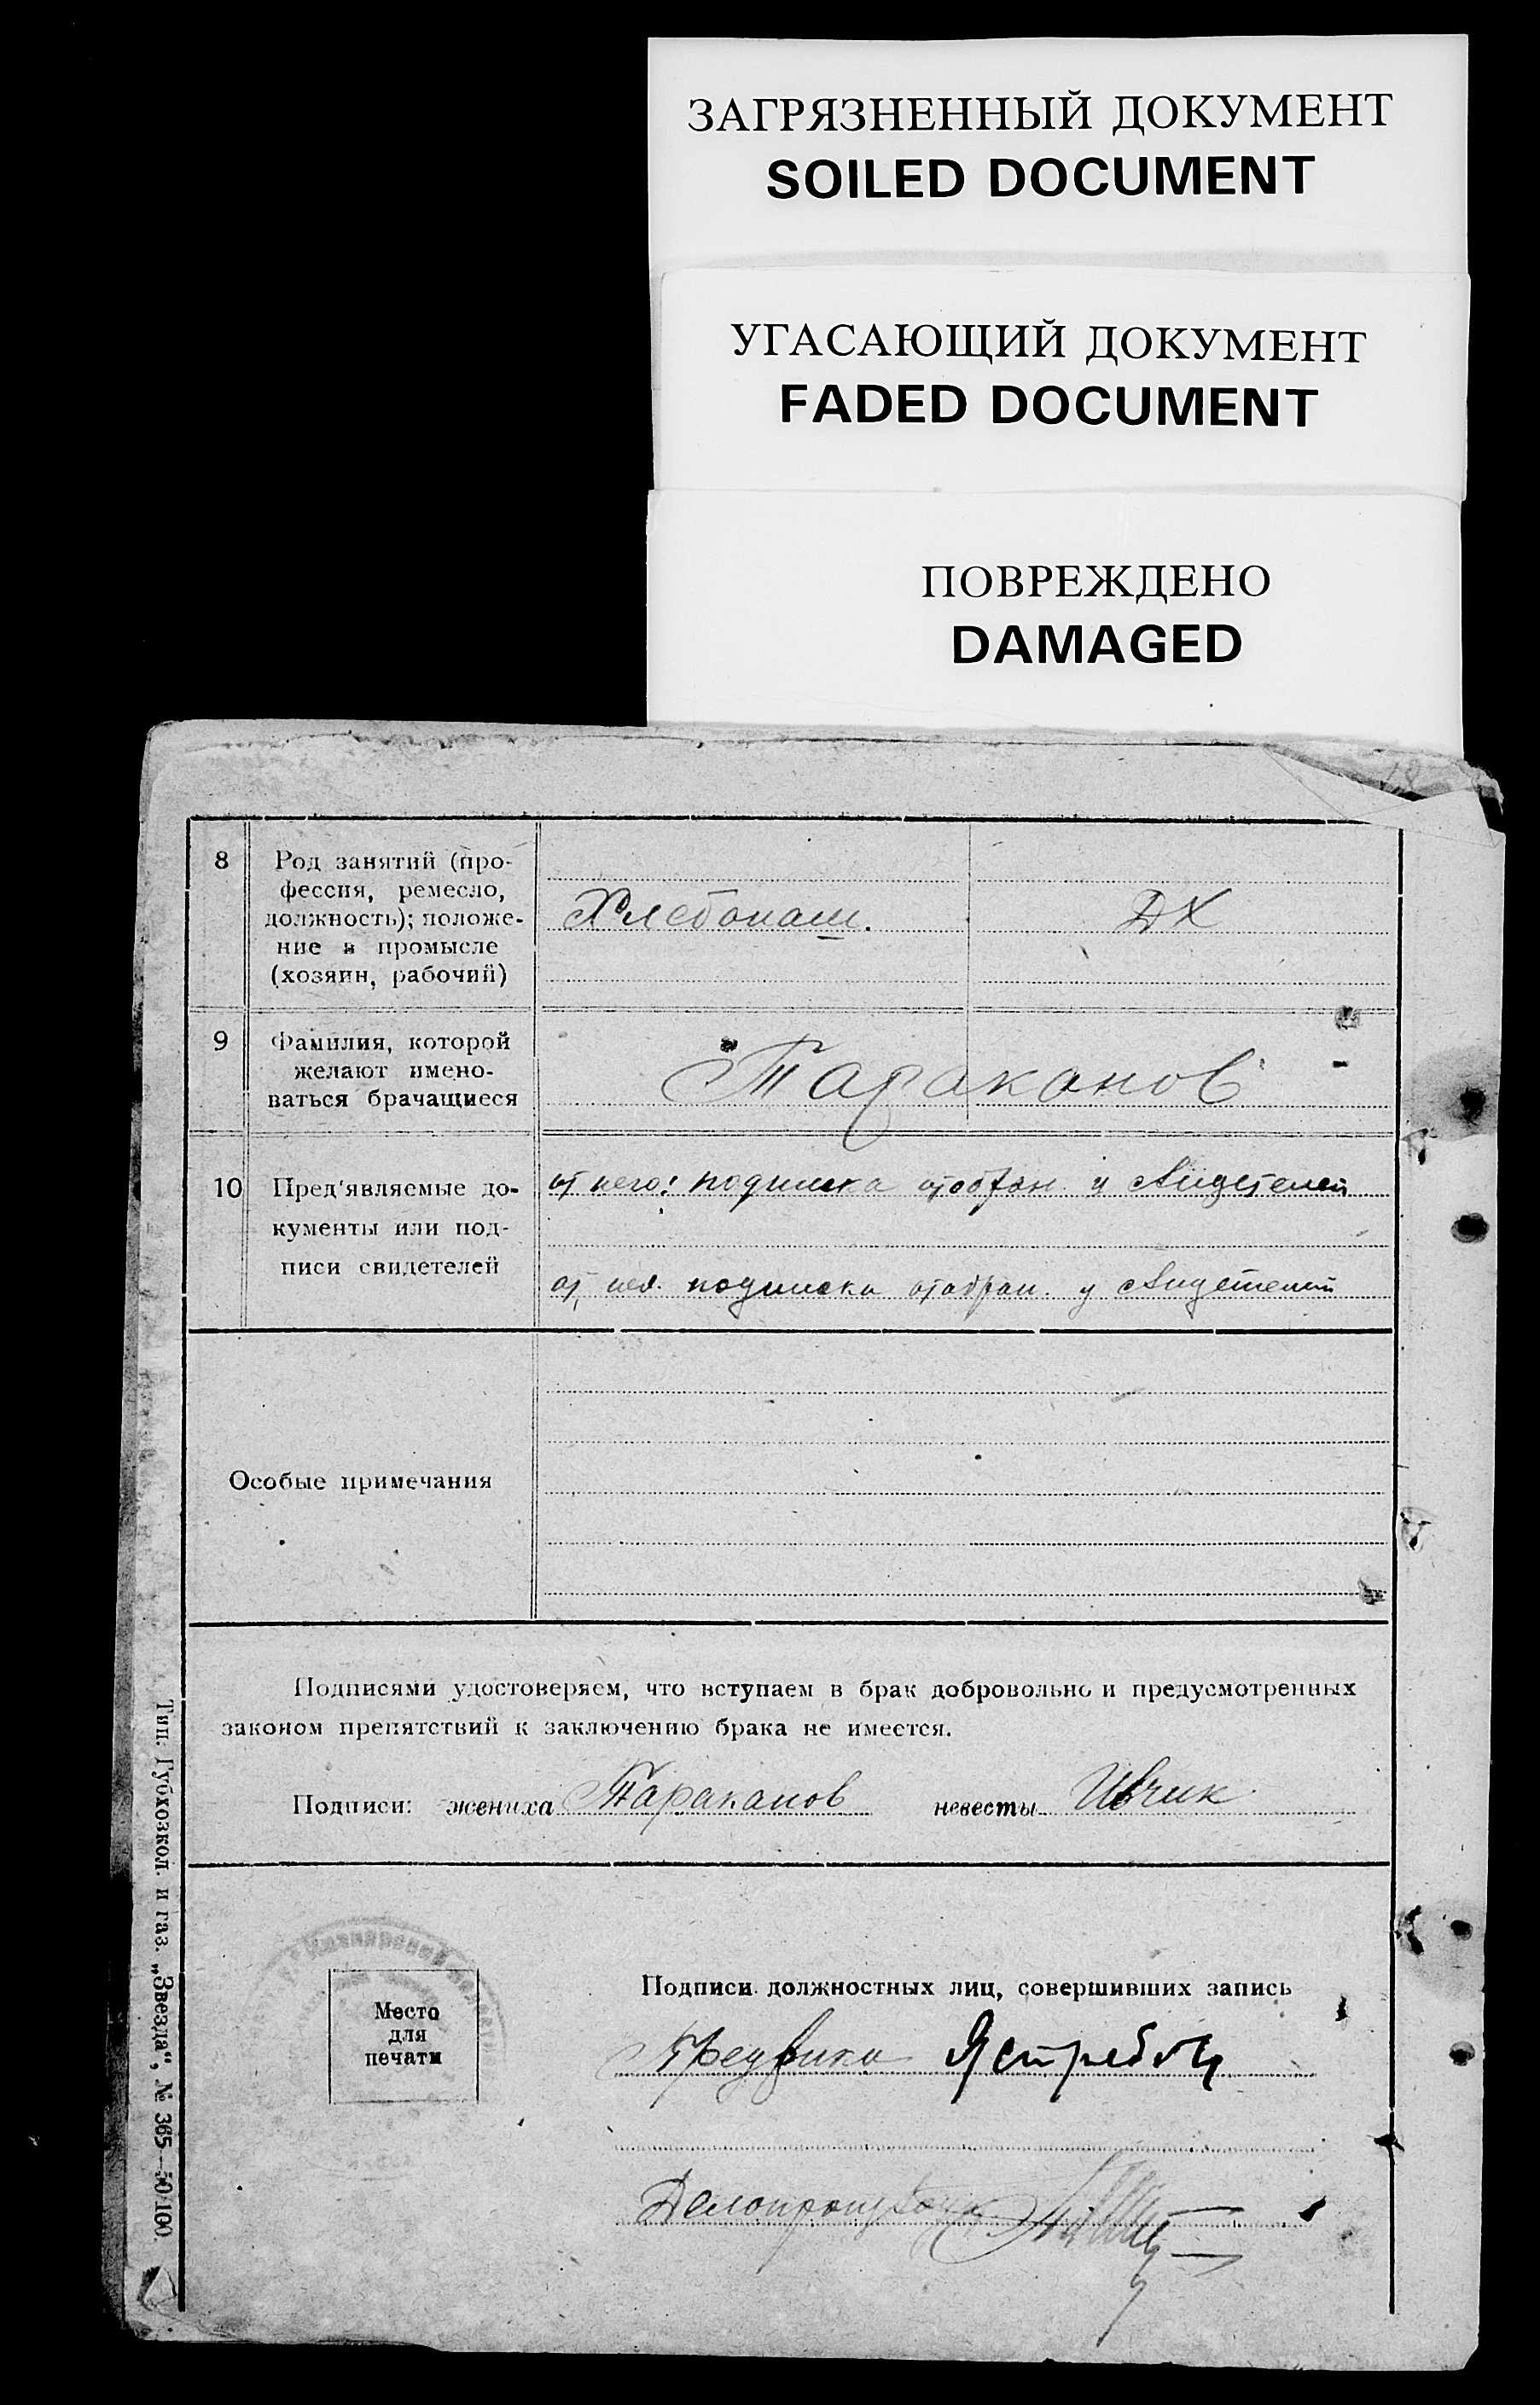 ЗАГРЯЗНЕННЫЙ ДОКУМЕНТ
SOILED DOCUMENT
УГАСАЮЩИЙ ДОКУМЕНТ
FADED DOCUMENT
ПОВРЕЖДЕНО
DAMAGED
8
Род занятий (про-
фессия, ремесло,
должность); положе-
ние в промысле
(хозяин, рабочий)
Хлебопаш.
ДХ
9
Фамилия, которой
желают имено-
ваться брачащиеся
Тараканов
10
Пред'являемые до-
кументы или под-
писи свидетелей
от него: подписка отобран. у
от нея подписка отобран. у
Особые примечания
Подписями удостоверяем, что вступаем в брак добровольно и предусмотренных
законом препятствий к заключению брака не имеется.
Подписи: жениха Тараканов невесты Ивчик
Место
для
печати
Подписи должностных лиц, совершивших запись
Предвика
Делопроизвод
Тип. Губхозкол. и газ. „Звезда“, № 365—50/100.